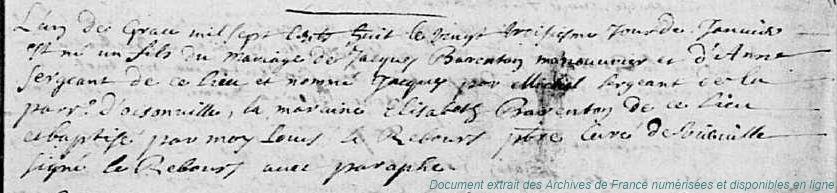 L'an de Grace mil sept cents huit le vingt troisiesme Jour de Janvier
est né un fils du mariage de Jacques Barenton manouvrier et d'Anne
Sergeant de ce lieu et nommé Jacques par Michel Sergeant de la
parr.e D'oisonville, la maraine Elisabeth Barenton de ce lieu
et baptisé par moy Louis le Rebours pbre curé de
signé le Rebours avec paraphe.
Document extrait des Archives de France numérisées et disponibles en ligne